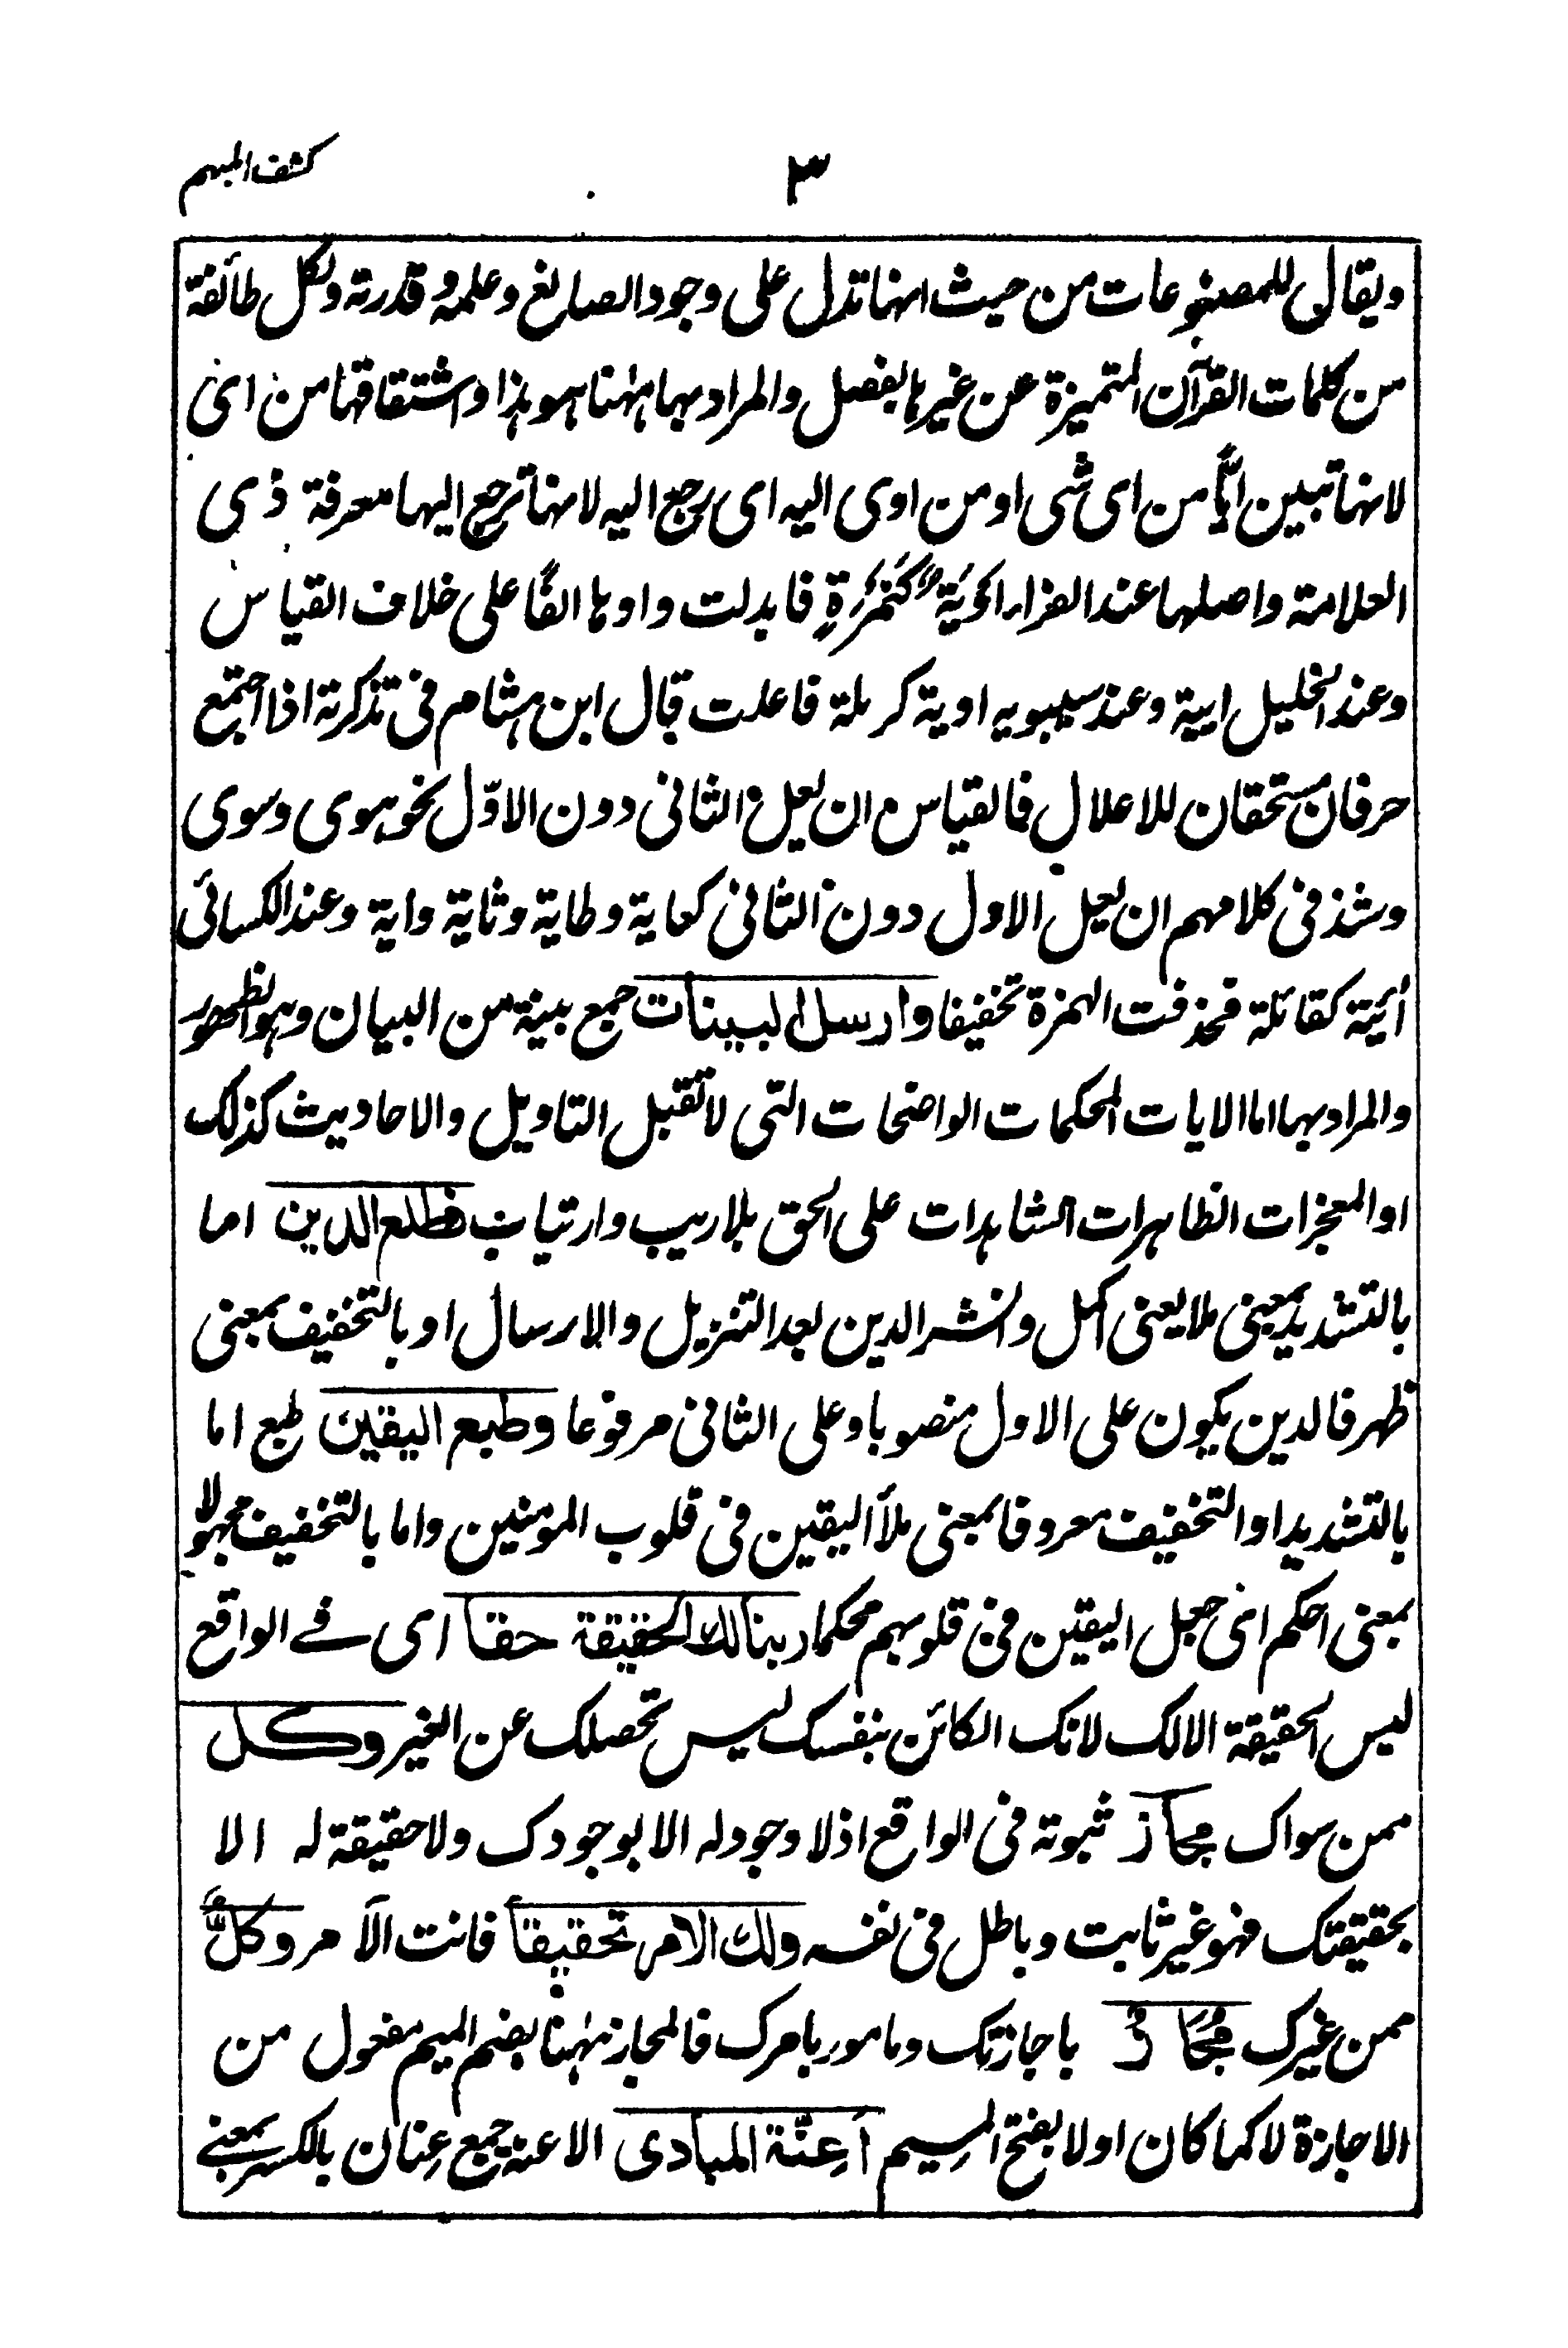 كشف المبهم
٣
ويقال للمصنوعات من حيث انها تدل على وجود الصانع وعلمه وقدرته ولكل طائفة
من كلمات القرآن المتميزة عن غيرها بفصل والمراد بها ههنا هو هذا واشتقاقها من اى
لانها تبين ايًّا من اى شى او من اوى اليه اى رجع اليه لانها ترجع اليها معرفة ذى
العلامة واصلها عند الفراء اَوَيَةٌ كَتَمَرَةٍ فابدلت واوها الفًا على خلاف القياس
وعند الخليل ايية وعند سيبويه اوية كرملة فاعلت قال ابن هشام فى تذكرته اذا اجتمع
حرفان مستحقان للاعلال فالقياس ان يعل الثانى دون الاوّل نحو هوى وسوى
وشذ فى كلامهم ان يعل الاول دون الثانى كغاية وطاية وثاية واية وعند الكسائى
أئية كقائلة فحذفت الهمزة تخفيفا وارسل البينات جمع بينة من البيان وهو الظهور
والمراد بها اما الايات المحكمات الواضحات التى لا تقبل التاويل والاحاديث كذلك
او المعجزات الظاهرات الشاهدات على الحق بلا ريب وارتياب فطلع الدين اما
بالتشديد بمعنى ملا يعنى اكمل ونشر الدين بعد التنزيل والارسال او بالتخفيف بمعنى
ظهر فالدين يكون على الاول منصوبا وعلى الثانى مرفوعا وطبع اليقين طبع اما
بالتشديد او التخفيف معروفا بمعنى ملأ اليقين فى قلوب المومنين واما بالتخفيف مجهولا
بمعنى احكم اى جعل اليقين فى قلوبهم محكما ربنا لك الحقيقة حقا اى فے الواقع
ليس الحقيقة الا لك لانك الكائن بنفسك ليس تحصلك عن الغير وكل
ممن سواك مجاز ثبوته فى الواقع اذ لا وجود له الا بوجودك ولا حقيقة له الا
بحقيقتك فهو غير ثابت وباطل فى نفسه ولك الامر تحقيقاً فانت الآمر وكلٌّ
ممن غيرك مُجَازٌ باجازتك ومامور بامرك فالمجاز ههنا بضم الميم مفعول من
الاجازة لا كما كان اولا بفتح الميم اَعِنَّة المبادى الاعنة جمع عِنان بالكسر بمعنے